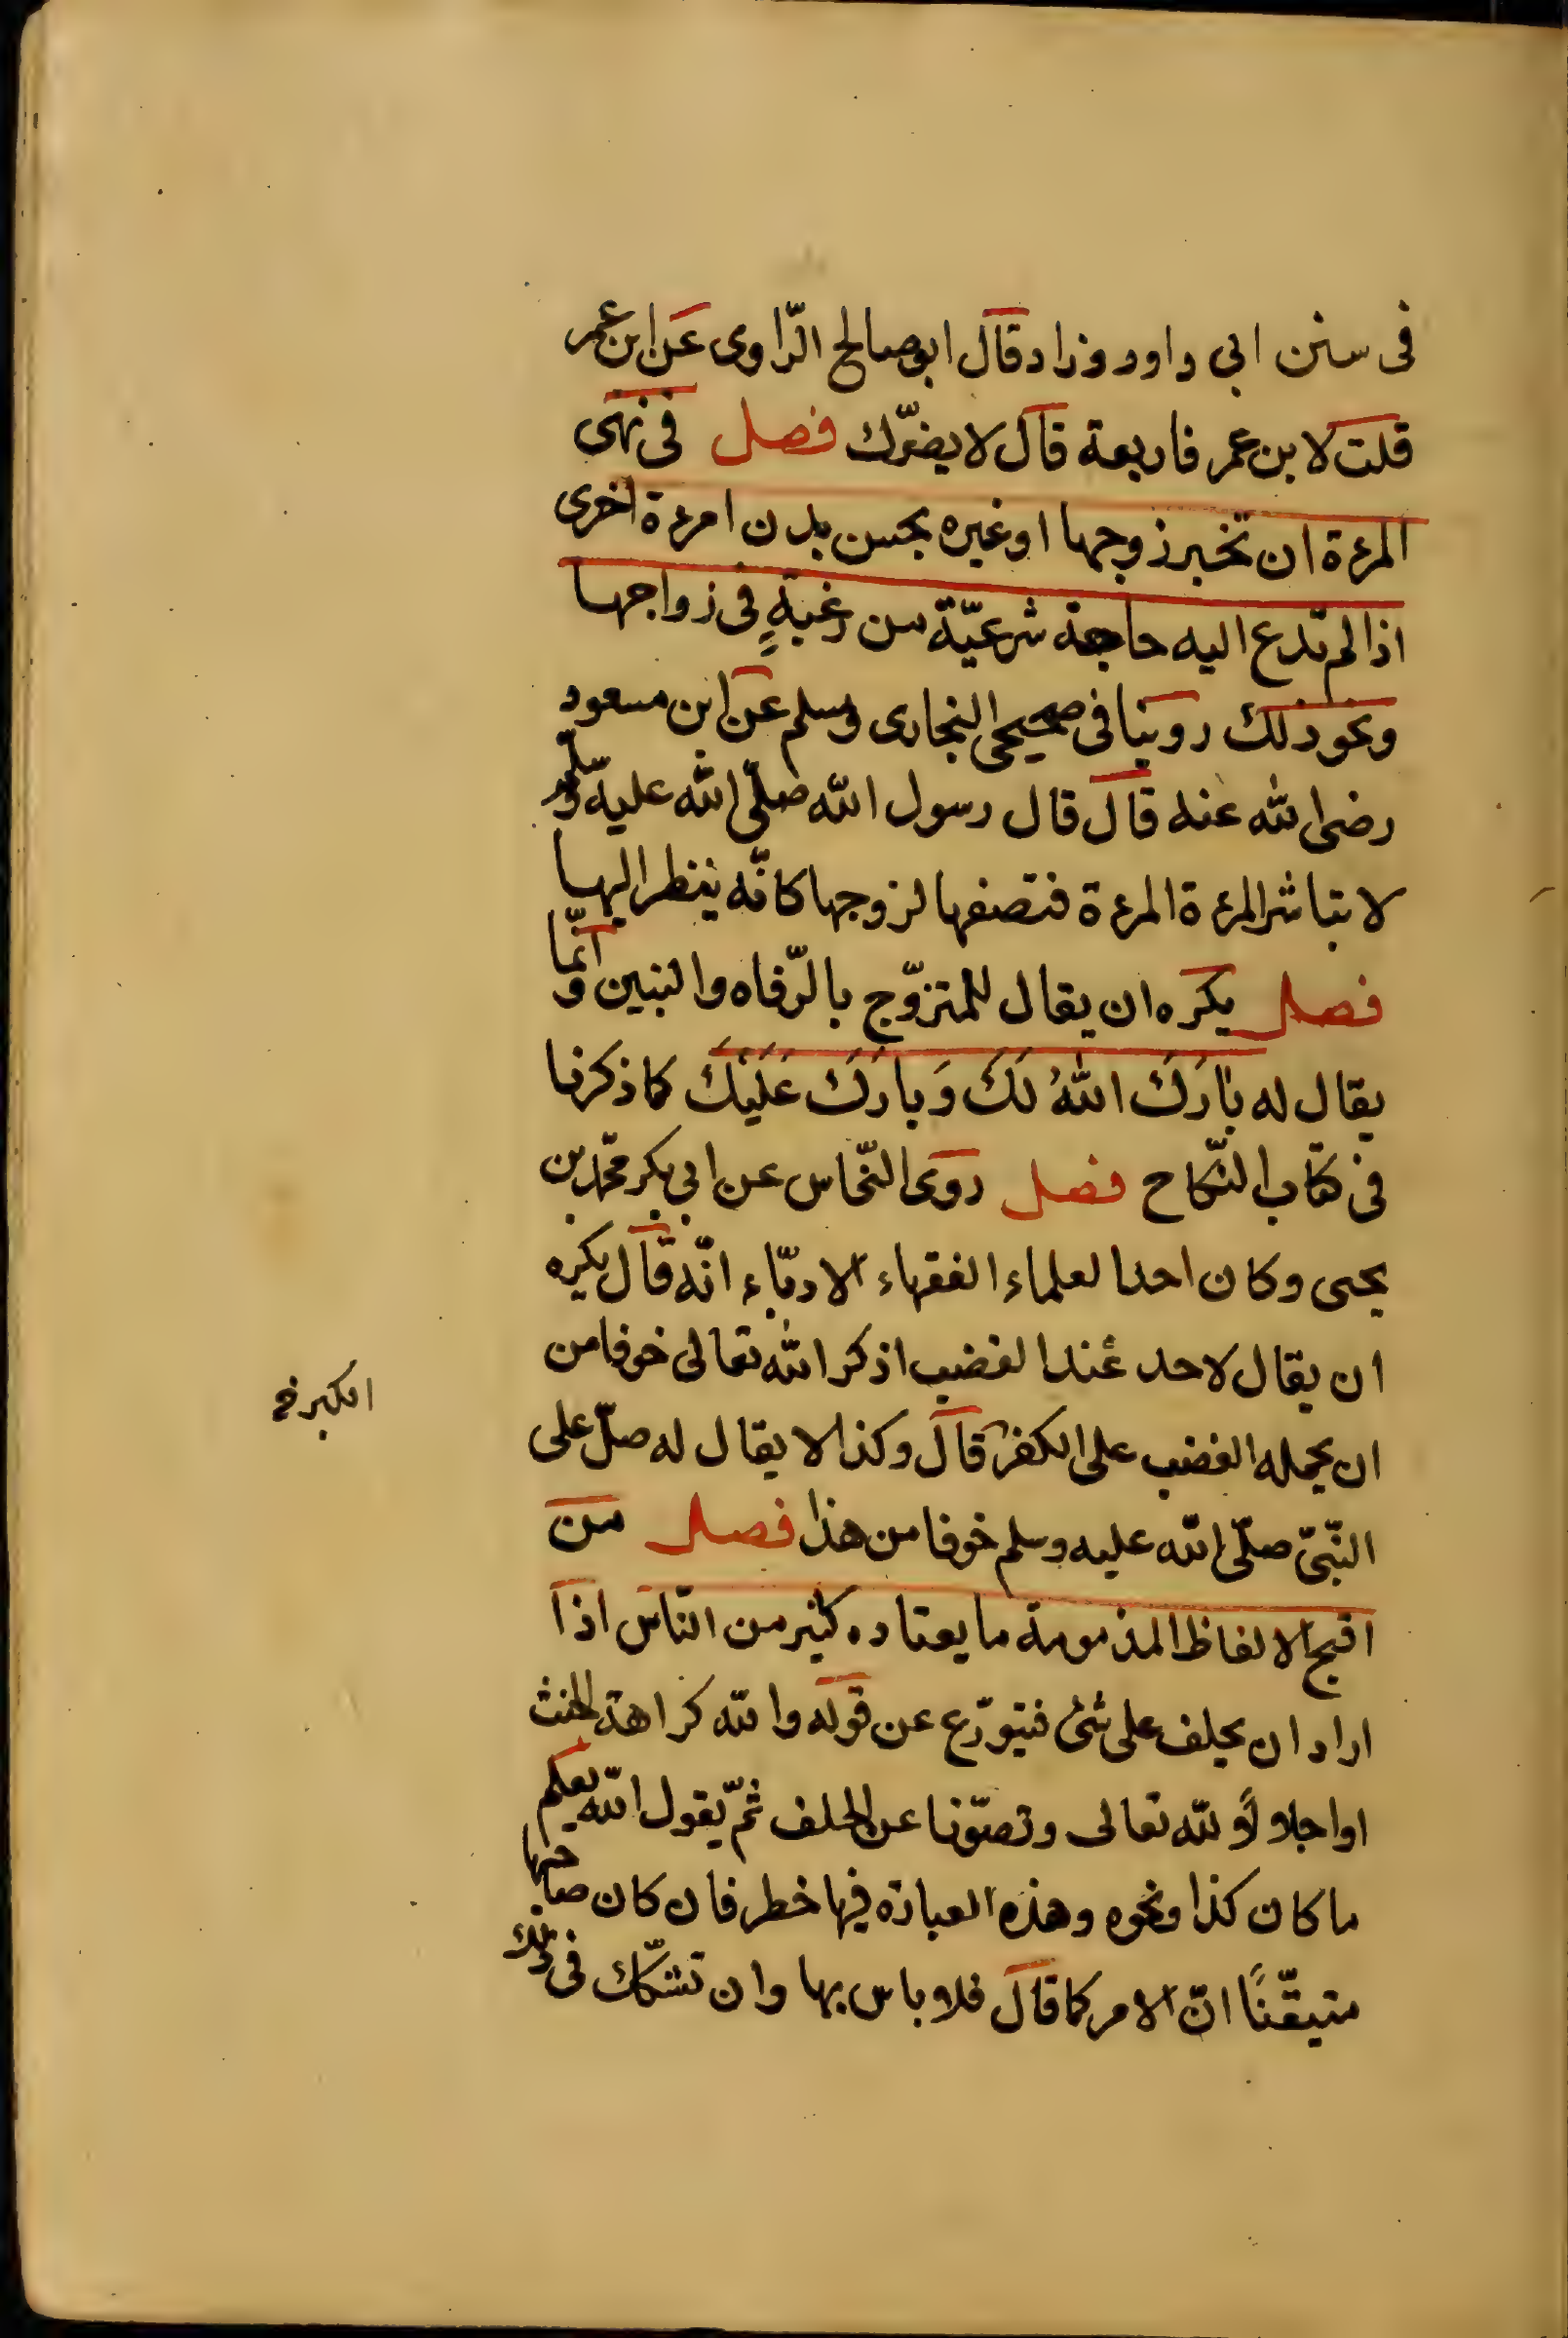 فى سنن ابى داود وزاد قال ابو صالح الرّاوى عن ابن عمر
قلت لابن عمر فاربعة قال لا يضرّك فصل فى نهى
المرءة ان تخبر زوجها او غيره بحسن بدن امرءة اخرى
اذا لم تدع اليه حاجة شرعيّة من رغبةٍ فى زواجها
ونحو ذلك روينا فى صحيحى البخارى ومسلم عن ابن مسعود
رضى الله عنه قال قال رسول الله صلّى الله عليه وسلّم
لا تباشر المرءة المرءة فتصفها لزوجها كانّه ينظر اليها
فصل يكره ان يقال للمتزوّج بالرّفاه والبنين وانّما
يقال له بَارَكَ اللهُ لَكَ وَبارَكَ عَلَيْكَ كما ذكرنا
فى كتاب النّكاح فصل روى النّحاس عن ابى بكر محمّد بن
يحيى وكان احد العلماء الفقهاء الادبّاء انّه قال يكره
ان يقال لاحد عند الغضب اذكر الله تعالى خوفا من
ان يحمله الغضب على الكفر قال وكذا لا يقال له صلّ على
الكبر خ
النّبىّ صلّى الله عليه وسلم خوفا من هذا فصل من
اقبح الالفاظ المذمومة ما يعتاده كثير من النّاس اذا
اراد ان يحلف على شئ فيتورّع عن قوله والله كراهة الحنث
او اجلالًا لله تعالى وتصوّنا عن الحلف ثمّ يقول الله يعلم
ما كان كذا ونحوه وهذه العبارة فيها خطر فان كان صاحبها
متيقّنًا انّ الامر كما قال فلا باس بها وان تشكّك فى ذلك